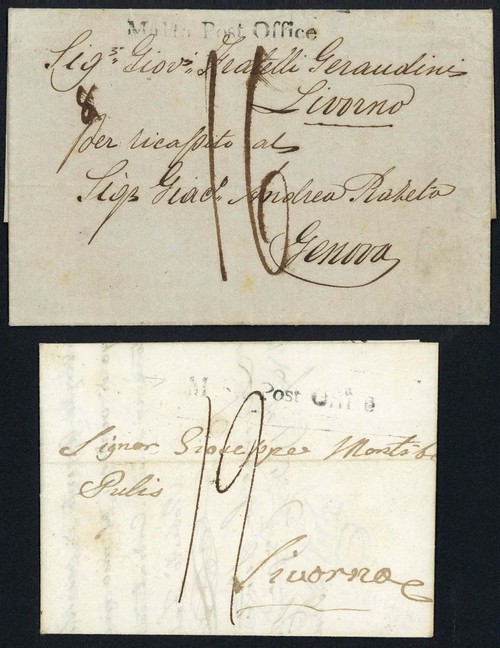 Malta Post Office
Sig.ri Giov. Fratelli Geraudini
Livorno
8
per ricapito al
Sig.r Giac.o Andrea Raheta
Genova
16
M Post Office
Signor Gioseppe
Pulis
19
Livorno